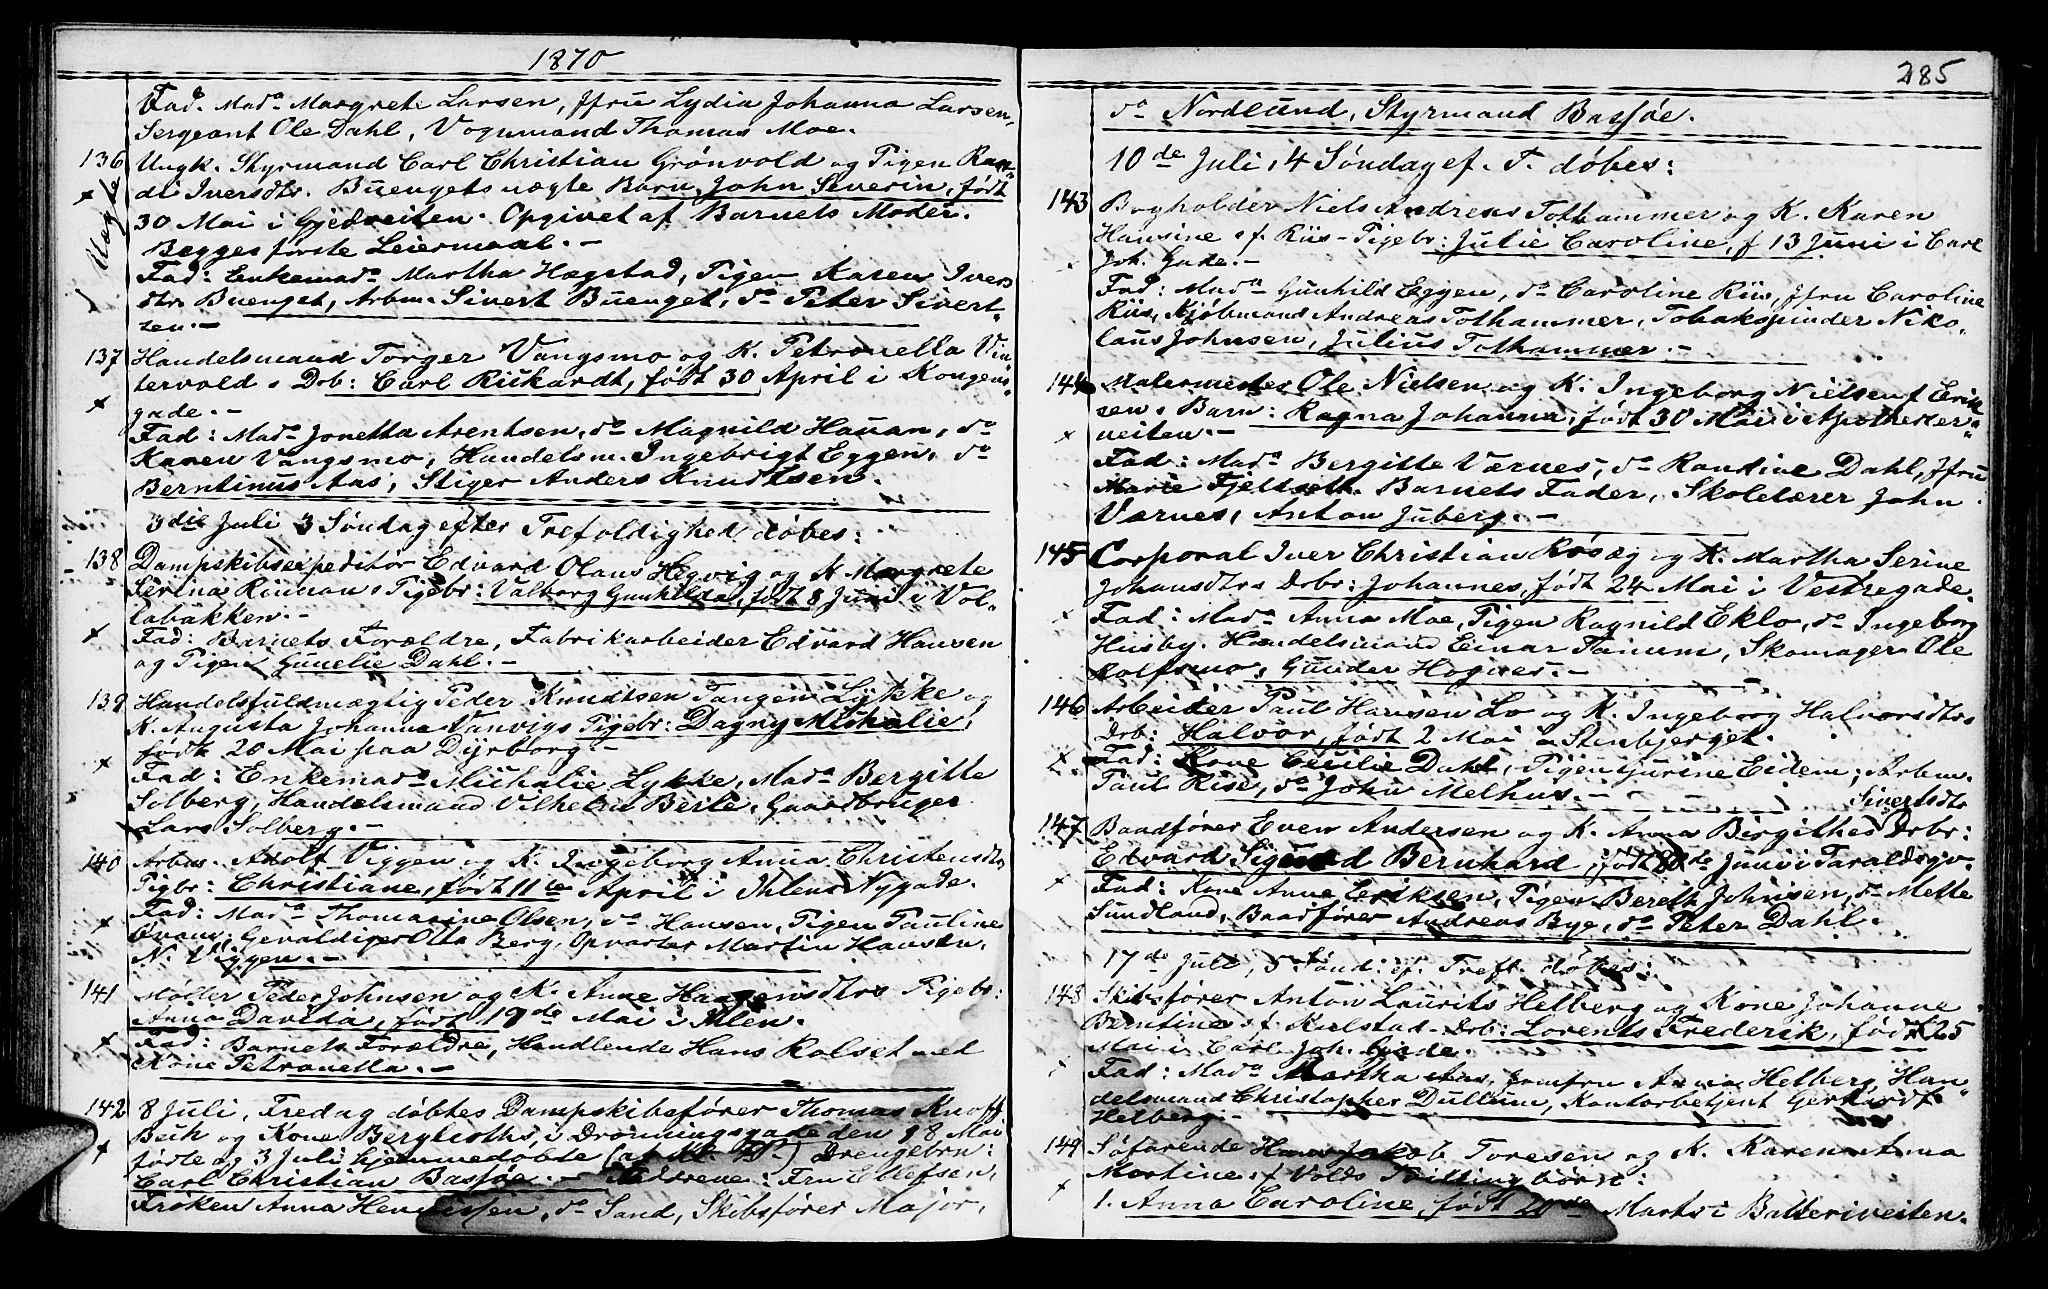 1870
Fad. Mad<sup>a</sup> Margrete Larsen, Jfru Lydia Johanna Larsen,
Sergeant Ole Dahl, Vognmand Thomas Moe.
136 Ungk. Styrmand Carl Christian Grönvold og Tigen Ran=
di Iversdtr. Buengets uægte Barn, John Severin, født
Uægte
30 Mai i Gjedveiten. Opgivet af Barnets Moder.
Begges første Leiermaal.-
Fad: Enkemad<sup>a</sup> Martha Hægstad, Tigen Karen Ivers
dtr. Buenget, Arbm. Sivert Buenget, d<sup>o</sup> Peter Sivert
sen.-
137 Handelsmand Torger Vangsmo og K. Petronella Vin
tervold s Drb: Carl Richardt, født 30 April i Kongens
gade.-
Fad: Mad<sup>a</sup> Jonetta Arentsen, d<sup>o</sup> Magnild Hauan, d<sup>o</sup>
Karen Vangsmo, Handelsm. Ingebrigt Eggen, d<sup>o</sup>
Berntinus Aas, Stiger Anders Knudtsen.
3die Juli 3 Søndag efter Trefoldighed døbes:
138 Dampskibsexpeditör Edvard Olaus Hegvig og K Margrete
Serina Rinnan s Tigebr: Valborg Gunhilda, født 8 Juni i Vol-
labakken.-
Fad: Barnets Forældre, Fabrikarbeider Edvard Hansen
og Tigen Gunelie Dahl.-
139 Handelsfuldmægtig Peder Knudtsen Tangen Lykke og
K. Augusta Johanna Vanvigs Tigebr: Dagny Michalie,
født 20 Mai paa Dyrborg-
Fad: Enkemad<sup>a</sup> Michalie Lykke, Mad<sup>a</sup> Bergitte
Solberg, Handelsmand Vilhelm Berle, Gaardbruger
Lars Solberg.-
140 Arbm. Adolf Viggen og K. Ingeborg Anna Christensdtrs
Tigbr: Christiane, født 11te April i Ihlens Nygade.
Fad: Mad<sup>a</sup> Thomasine Olsen, d<sup>o</sup> Hansen, Tigen Pauline
Gevaldiger Otto Berg, Opvarter Martin Hansen,
N. Viggen.-
141 Møller Peder Johnsen og K. Anne Haagensdtrs Tigebr:
Anna Davida, født 19de Mai i Ihlen.
Fad: Barnets Forældre, Handlende Hans Rolset med
Kone Petronella.-
142 8 Juli, Fredag døbtes Dampskibsfører Thomas Knoff
Buch og Kone Berglioths, i Dronningsgade den 18 Mai
fødte og 3 Juli hjemmedøbte Drengebrn:
Carl Christian Bassøe.- Fadderne: Fru Ellefsen,
Frøken Anna Henrissen, d<sup>o</sup> Sand, Skibsfører Major,
285
d<sup>o</sup> Nordlund, Styrmand Bassøe.
10de Juli, 4 Søndag ef. T. døbes:
143 Bogholder Niels Andreas Tothammer og K. Karen
Hansine s f. Riis-Tigebr: Julie Caroline, f 13 Juni i Carl
Joh. Gade.-
Fad: Mad<sup>a</sup> Gunhild Eggen, d<sup>o</sup> Caroline Riis, Jfru Caroline
Riis, Kjøbmand Andreas Tothammer, Tobakspinder Niko-
laus Johnsen, Julius Tothammer.-
144 Malermester Ole Nielsen og K. Ingeborg Nielsen f Erik
sen s Barn: Ragna Johanna, født 30 Mai i Apotheker=
veiten.-
Fad: Mad<sup>a</sup> Bergitte Værnes, d<sup>o</sup> Randine Dahl, Jfru
Marie Fjeltseth. Barnets Fader, Skolelærer John
Værnes, Anton Juberg.-
145 Corporal Iver Christian Rösæg og K. Martha Serine
Johansdtrs Drbr: Johannes, født 24 Mai i Vestregade.
Fad: Mad<sup>a</sup> Anna Moe, Tigen Ragnild Eklo, d<sup>o</sup> Ingeborg
Husby, Handelsmand Einar Tanum, Skomager Ole
Rolfsmo, Gunder Hognes.-
146 Arbeider Paul Hansen Lo og K. Ingeborg Halvorsdtrs
Drb: Halvör, født 2 Mai Stenbjerget.
Fad: Kone Cecilie Dahl, Tigen Gurine Eidem, Arbm.
Paul Rise, d<sup>o</sup> John Melhus.-
Sivertsdtr
147 Baadfører Even Andersen og K. Anna Birgithes Drbr:
Edvard Sigurd Bernhard, født de Juni i Taraldsgv.
Fad: Kone Anne Eriksen, Tigen Bereth Johnsen, d<sup>o</sup> Mette
Sundland, Baadfører Andreas Bye, d<sup>o</sup> Peter Dahl.
17de Juli, 5 Sönd: ef. Tref. døbes:
148 Skibsfører Anton Laurits Helberg og Kone Johanne
Berntine s f. Kielstad-Drb: Lorents Frederik, født 25
Mai i Carl Joh. Gade.
Fad: Mad<sup>a</sup> Martha Aas, Jomfru Anna Helberg, Han
delsmand Christopher Dullum, Kontorbetjent Gerhardt
Helberg.-
149 Søfarende Hans Jakob Toresen og K. Karen Anna
Martine s f Volds Tvillingbörn:
1. Anna Caroline, født 20de Marts i Batteriveiten.